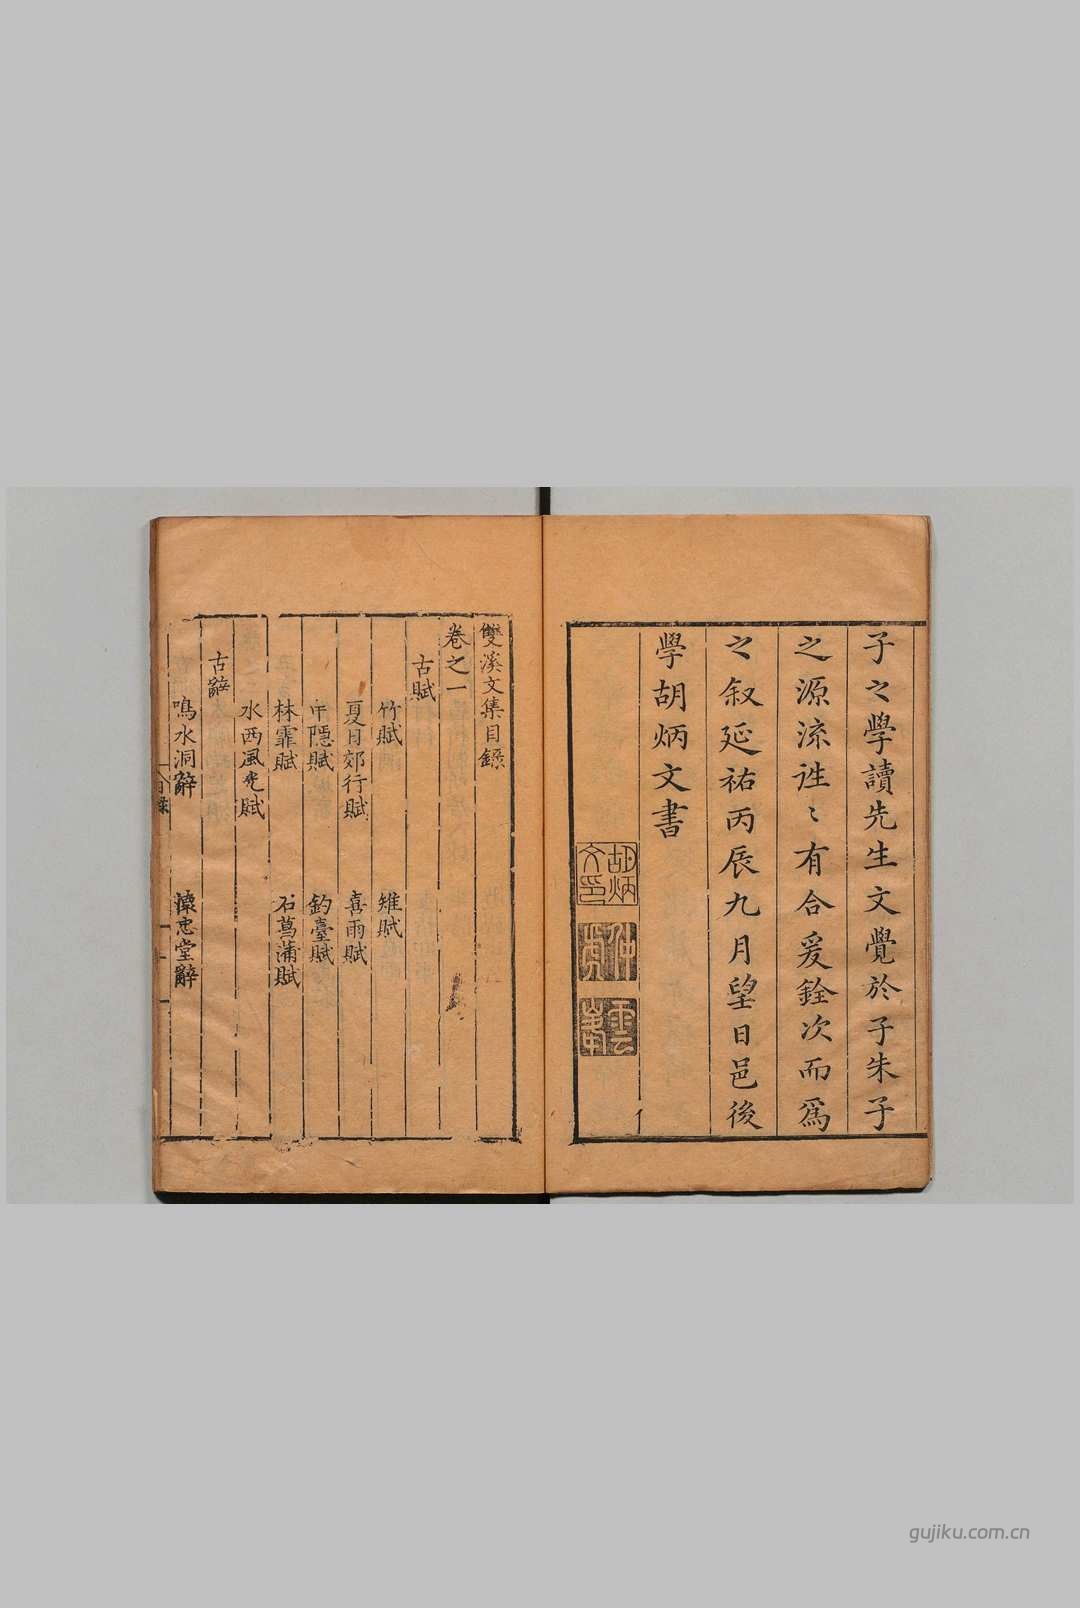 子之學讀先生文覺於子朱子
之源流徃〻有合爰銓次而爲
之叙延祐丙辰九月望日邑後
學胡炳文書
胡炳文印
仲虎
雲峯
雙溪文集目錄
卷之一
古賦
竹賦 雉賦
夏日郊行賦 喜雨賦
中隱賦 釣臺賦
林霏賦 石菖蒲賦
水西風光賦
古辭
鳴水洞辭 懷忠堂辭
目錄
gujiku.com.cn